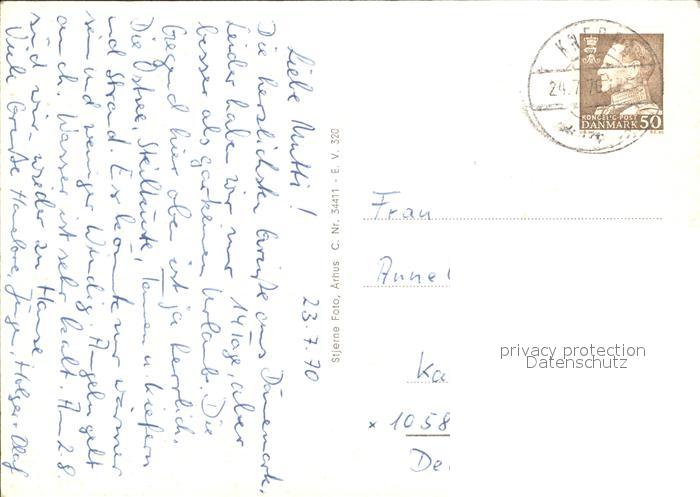 Liebe Mutti! 23.7.70
Die herzlichsten Grüße aus Dänemark.
Leider haben wir nur 14 Tage, aber
besser als gar keinen Urlaub. Die
Gegend hier oben ist ja herrlich.
Die Ostsee, Steilküste, Tannen u. Kiefern
und Strand. Es könnte nur wärmer
sein und weniger windig. Angeln geht
auch. Wasser ist sehr kalt. Am 2.8.
sind wir wieder zu Hause.
Viele Grüße Hanelore, Jürgen, Holger + Olaf
Stjerne Foto, Århus C. Nr. 34411 - E. V. 320
24.7.70
KONGELIG POST
DANMARK 50
Frau
Annel
Ka
x 1058
De
privacy protection
Datenschutz